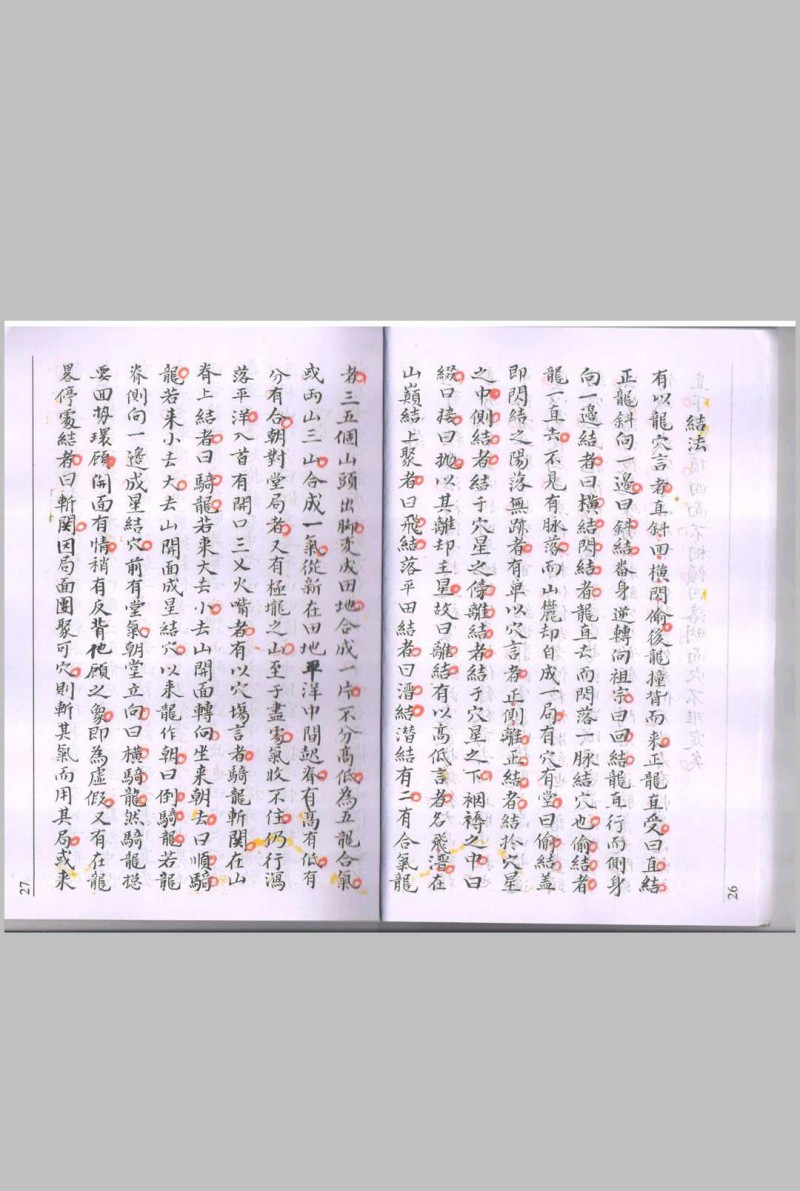 結法
有以龍穴言者直斜回橫閃偷後龍撞背而來正龍直受曰直結
正龍斜向一邊曰斜結畨身逆轉向祖宗曰回結龍直行而側身
向一邊結者曰橫結閃結者龍直去而閃落一脉結穴也偷結者
龍一直去不見有脉落而山麓却自成一局有穴有堂曰偷結蓋
即閃結之陽落無跡者有单以穴言者正側離正結者結於穴星
之中側結者結于穴星之傍離結者結于穴星之下裀褥之中曰
綴曰接曰抛以其離却主星故曰離結有以髙低言者名飛潛在
山巔結上聚者曰飛結落平田結者曰潛結潛結有二有合氣龍
者三五個山頭出脚变成田地合成一片不分髙低為五龍合氣
或両山三山合成一氣從新在田地平洋中間起脊有髙有低有
分有合朝對堂局者又有極壠之山至于盡處氣收不住仍行瀉
落平洋入首有開口三义火嘴者有以穴塲言者騎龍斬関在山
脊上結者曰騎龍若来大去小去山開面轉向坐来朝去曰順騎
龍若来小去大去山開面成星結穴以来龍作朝曰倒騎龍若龍
脊側向一邊成星結穴前有堂氣朝堂立向曰橫騎龍然騎龍揔
要回势環顧開面有情稍有反背他顧之象即為虛假又有在龍
畧停處結者曰斬関因局面團聚可穴則斬其氣而用其局或来
26
27